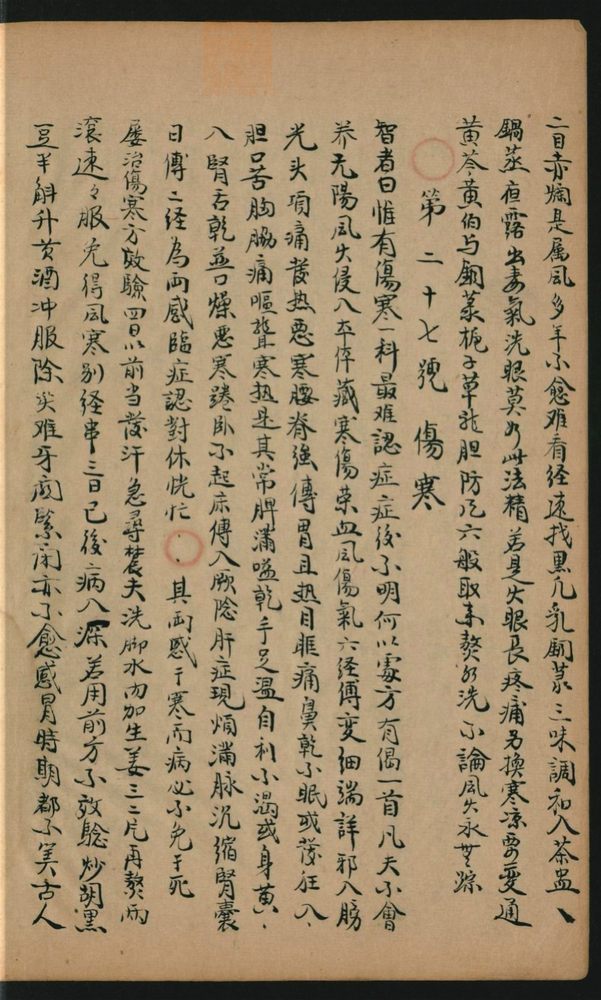 二目赤痛是属風多年不愈难看经速找黑几乳铜菉三味調和入茶盅
鍋蒸夜露出毒氣洗眼莫如此法精若是火眼長疼痛另換寒凉要变通
黄芩黄伯与铜菉栀子草龙胆防风六般取来熬水洗不論風火永無踪
第二十七號傷寒
智者曰惟有傷寒一科最难認症症後不明何以處方有偈一首凡夫不會
养元陽風火侵入卒倅藏寒傷荣血風傷氣六经傅変細端詳邪入膀
光头項痛發热悪寒腰脊強傅胃且热目眶痛鼻乾不眠或發狂入
胆口苦胸脇痛嘔聾寒热是其常脾滿嗌乾手足温自利不渴或身黄
入腎舌乾並口燥悪寒踡卧不起床傅入厥陰肝症現煩滿脉沉缩腎囊
日傅二经為両感臨症認對休恍忙其両感于寒而病必不免于死
屡治傷寒方效驗四日以前当發汗急尋農夫洗脚水内加生姜三二片再熬両
滚速々服免得風寒别经串三日已後病入深若用前方不效驗炒胡黑
豆半斛升黄酒冲服除災难牙関緊闭亦不愈感冒時期都不美古人